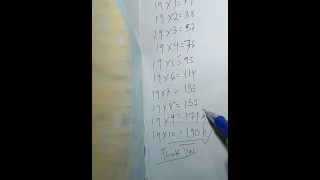 19 × 2 = 38
19 × 3 = 57
19 × 4 = 76
19 × 5 = 95
19 × 6 = 114
19 × 7 = 133
19 × 8 = 152
19 × 9 = 171
19 × 10 = 190
Thank You